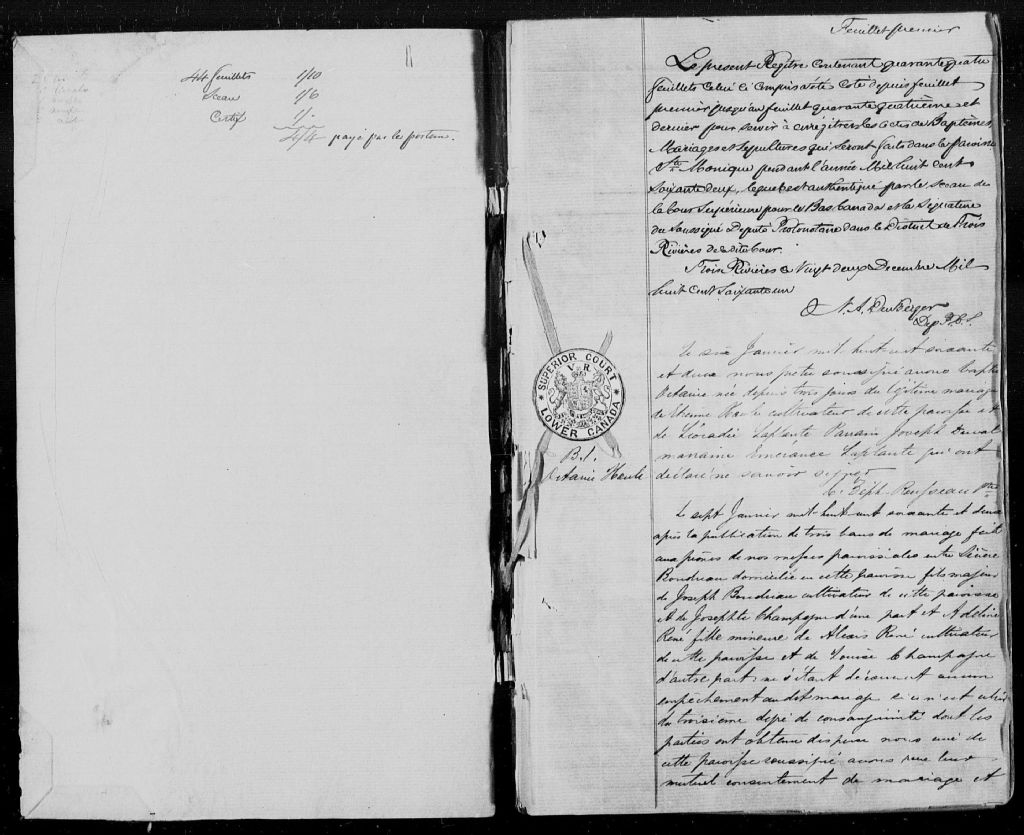 44 feuillets 1/10
Sceau 1/6
Certif 1/.
4/4 payé par le porteur.
Feuillet premier
Le present Régitre Contenant quarante quatre
feuillets Celui ci Compris a été Coté depuis feuillet
premier jusqu'au feuillet quarante quatrième et
dernier pour servir à enrégitrer les actes de Baptêmes,
Mariages et Sépultures qui seront faits dans la paroisse
Ste Monique pendant l'année Mil huit Cent
Soixante deux, lequel est authentiqué par le Sceau de
la Cour Supérieure pour le Bas Canada et la Signature
du Soussigné Deputé Protonotaire dans le District de Trois
Rivières de dite Cour.
Trois Rivières Vingt deux Decembre Mil
huit Cent Soixante un
N. A. DenBerger
Dep P. C. S.
SUPERIOR COURT
V R
LOWER CANADA
B.1.
Octavie Houle
Le six Janvier mil huit cent soixante
et deux nous prêtre soussigné avons baptisé
Octavie née depuis trois jours du légitime mariage
de Etienne Houle cultivateur de cette paroisse et
de Léocadie Laplante Parrain Joseph Duval
marraine Emérance Laplante qui ont
déclaré ne savoir signer
Le sept Janvier mil-huit cent soixante et deux
après la publication de trois bans de mariage fait
aux prônes de nos messes paroissiales entre
domicilié en cette paroisse fils majeur
de Joseph cultivateur de cette paroisse
et de Josephte Champagne d'une part et Adeline
René fille mineure de Alexis René cultivateur
de cette paroisse et de Louise Champagne
d'autre part; ne s'étant découvert aucun
empêchement au dit mariage si ce n'est celui
du troisième degré de consanguinité dont les
parties ont obtenu dispense nous curé de
cette paroisse soussigné avons reçu leur
mutuel consentement de mariage et